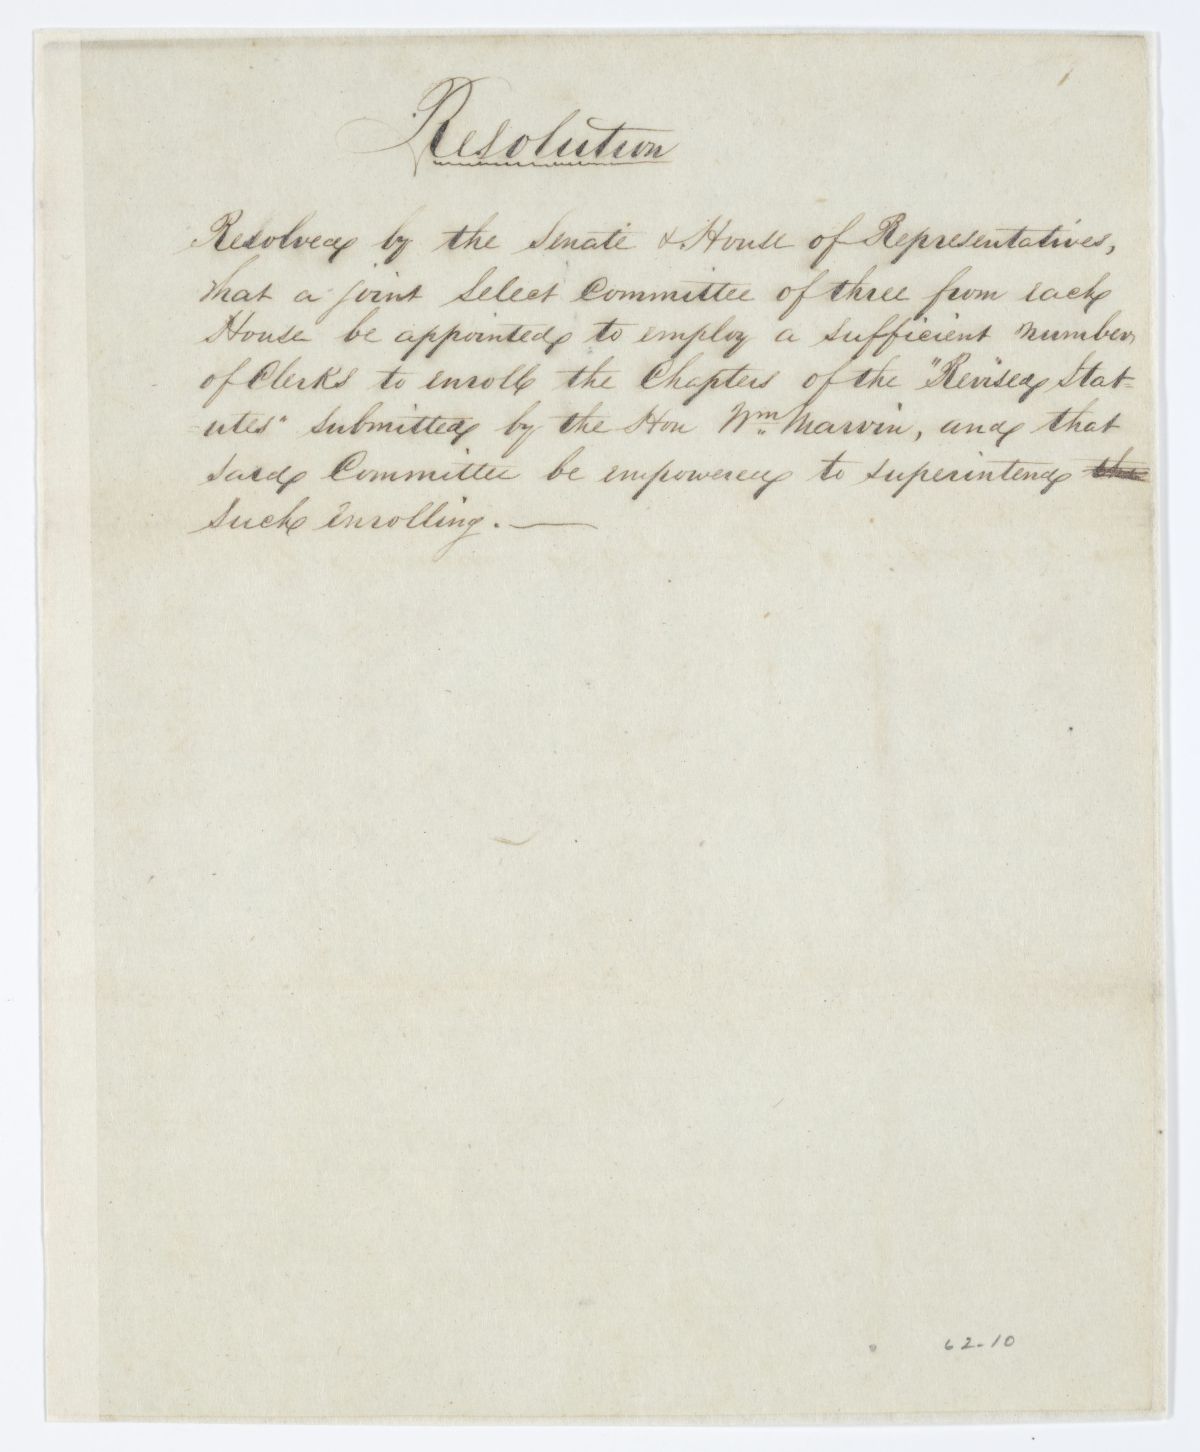 Resolution
Resolved by the Senate & House of Representatives,
that a joint Select Committee of three from each
House be appointed to employ a sufficient number
of Clerks to enroll the Chapters of the "Revised Stat-
utes" submitted by the Hon Wm. Marvin, and that
said Committee be empowered to superintend the
such enrolling.
62-10